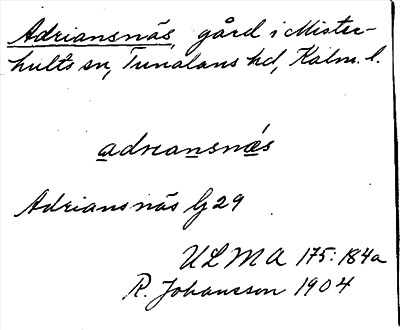 Adriansnäs, gård i Mister-
hults sn, Tunaläns hd, Kalm. l.
adriansnǽs
Adriansnäs Gj 29
ULMA 175:184a
R. Johansson 1904